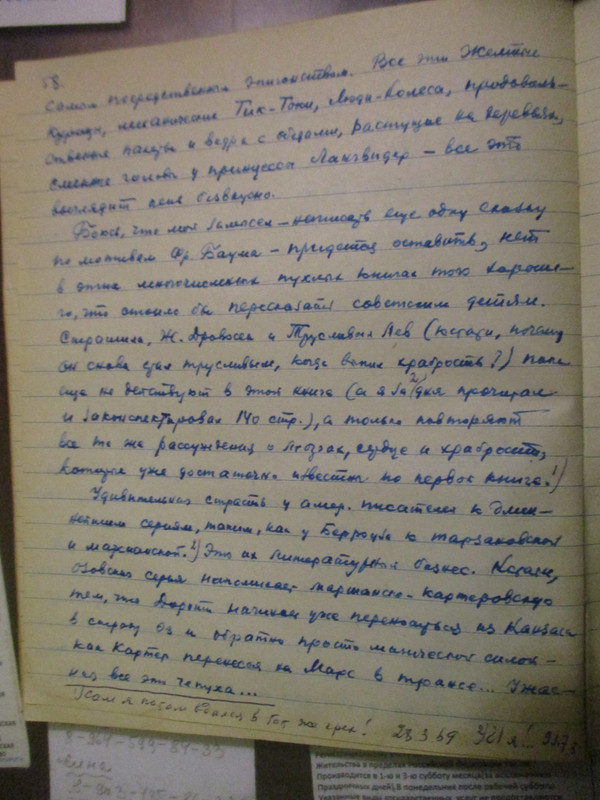 58.
самым посредственным эпигонством. Все эти Желтые
Курицы, механические Тик-Токи, Люди-Колеса, продоволь-
ственные пакеты и ведра с обедами, растущие на деревьях,
сменные головы у принцессы Лангвидер – все это
выглядит пока безвкусно.
Боюсь, что мой замысел – написать еще одну сказку
по мотивам Фр. Баума – придется оставить, нет
в этих многочисленных пухлых книгах того хороше-
го, что стоило бы пересказать советским детям.
Страшила, Ж. Дровосек и Трусливый Лев (кстати, почему
он снова стал трусливым, когда выпил храбрость?) пока
еще не действуют в этой книге (а я за 2 дня прочитал
и законспектировал 140 стр.), а только повторяют
все те же рассуждения о мозгах, сердце и храбрости,
которые уже достаточно известны по первой книге. 1)
Удивительная страсть у амер. писателей к длин-
нейшим сериям, таким, как у Берроуза к тарзановской
и марсианской. 2) Это их литературный бизнес. Кстати,
Озовская серия напоминает марсианско-картеровскую
тем, что Дороти начинает уже переноситься из Канзаса
в страну Оз и обратно просто магической силой –
как Картер перенесся на Марс в трансе... Ужас-
ная все это чепуха...
Сам я потом впал в тот же грех! 28 3 69 Увы!
8-964-599-84-33
жительства в пределах Российской Федерации
Производится в 1-ю и 3-ю субботу месяца